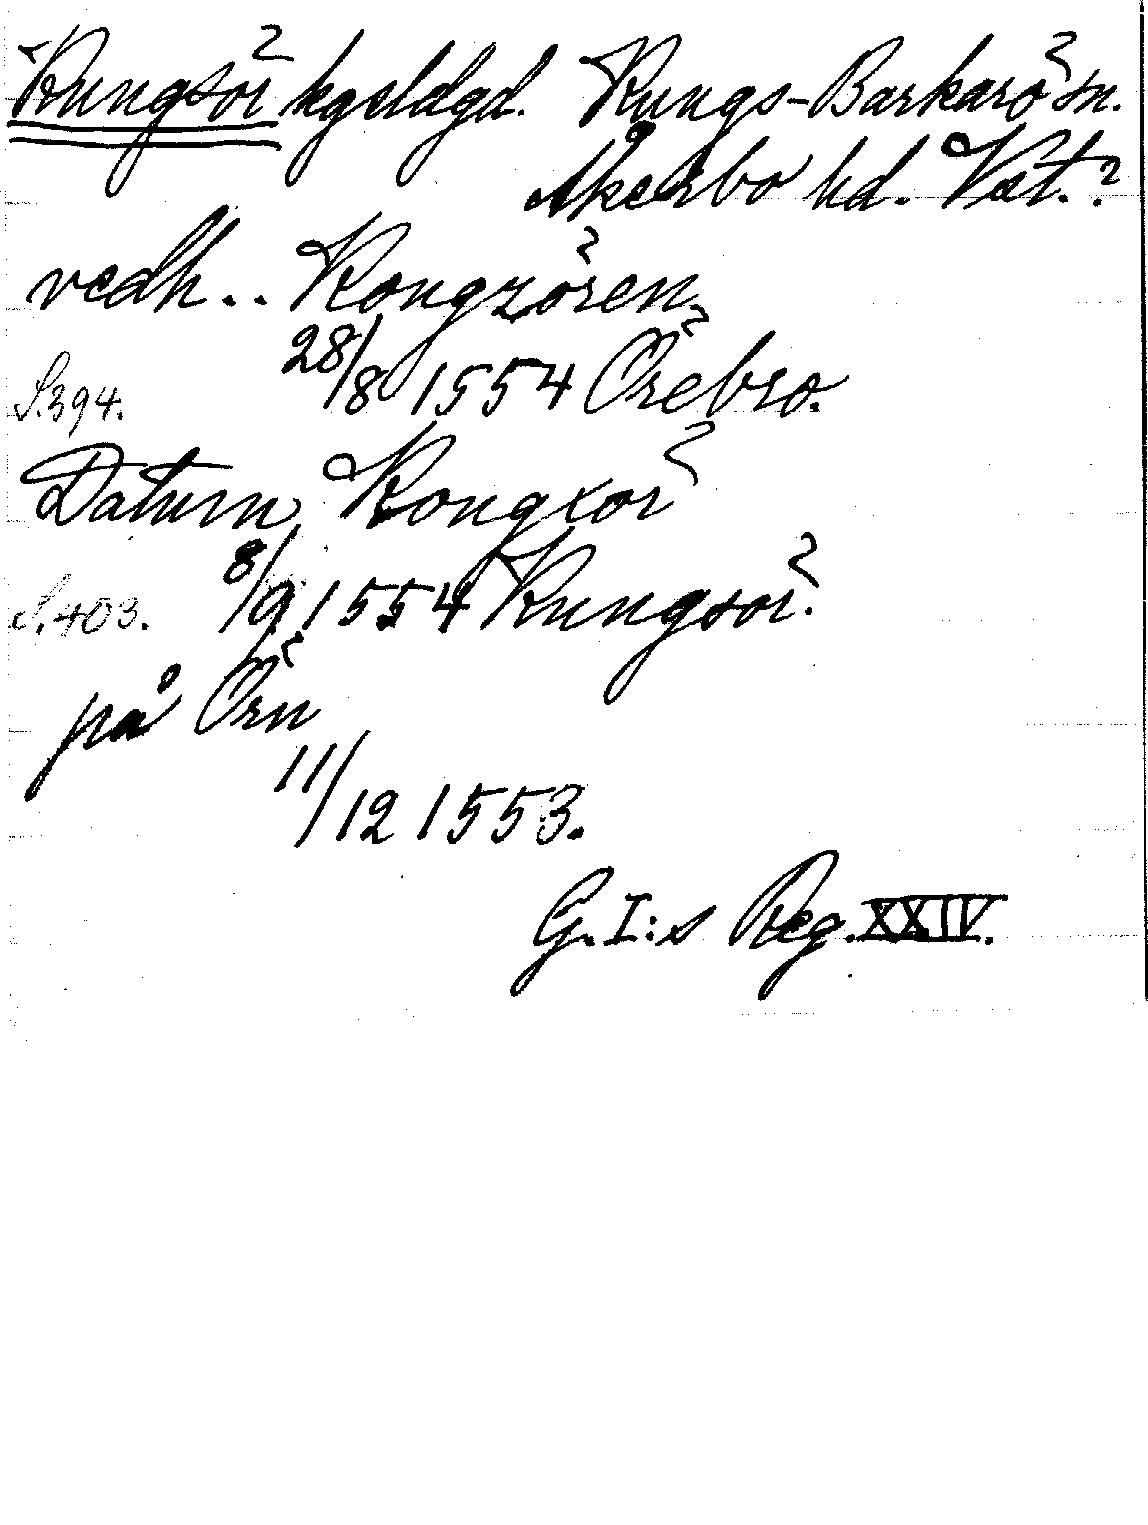 Kungsör kgsldgd. Kungs-Barkarö sn.
Åkerbo hd. Vst.?
vedh.. Kongzören
28/8 1554 Örebro.
S.394.
Datum Kongxör
8/9 1554 Kungsör.
S.403.
på Örn
11/12 1553.
G.I:s Reg. XXIV.